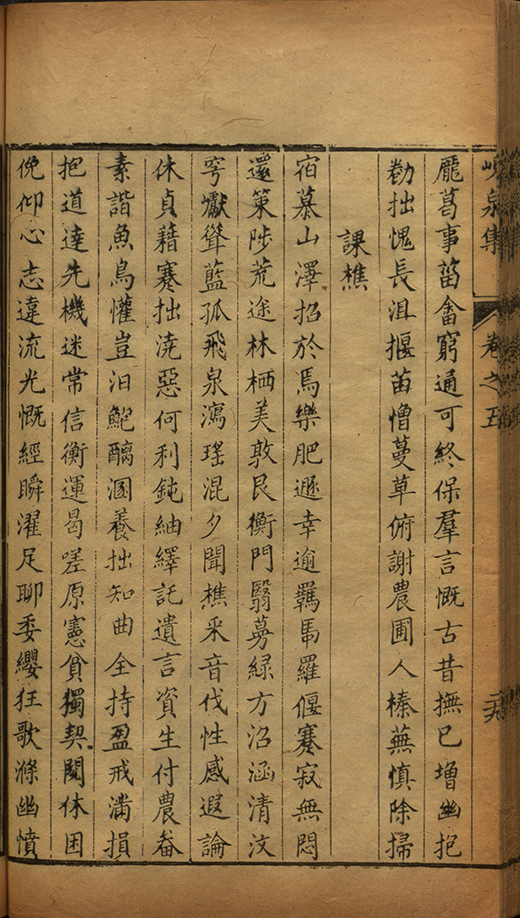 峴泉集 卷之五
龐葛事菑畬窮通可終保羣言慨古昔撫已增幽抱
勸拙愧長沮揠苗憎蔓草俯謝農圃人榛蕪慎除掃
課樵
宿慕山澤招於焉樂肥遯幸逾羈馬羅偃蹇寂無悶
還策陟荒途林栖美敦艮衡門翳蒭緑方沼涵清汶
穹巘聳藍孤飛泉瀉瑤混夕聞樵采音伐性感遐論
休貞藉蹇拙澆惡何利鈍紬繹託遺言資生付農畚
素諧魚鳥懽豈汨鮑醨溷養拙知曲全持盈戒滿損
抱道達先機迷常信衡運曷嗟原憲貧獨契閱休困
俛仰心志違流光慨經瞬濯足聊委纓狂歌滌幽憤